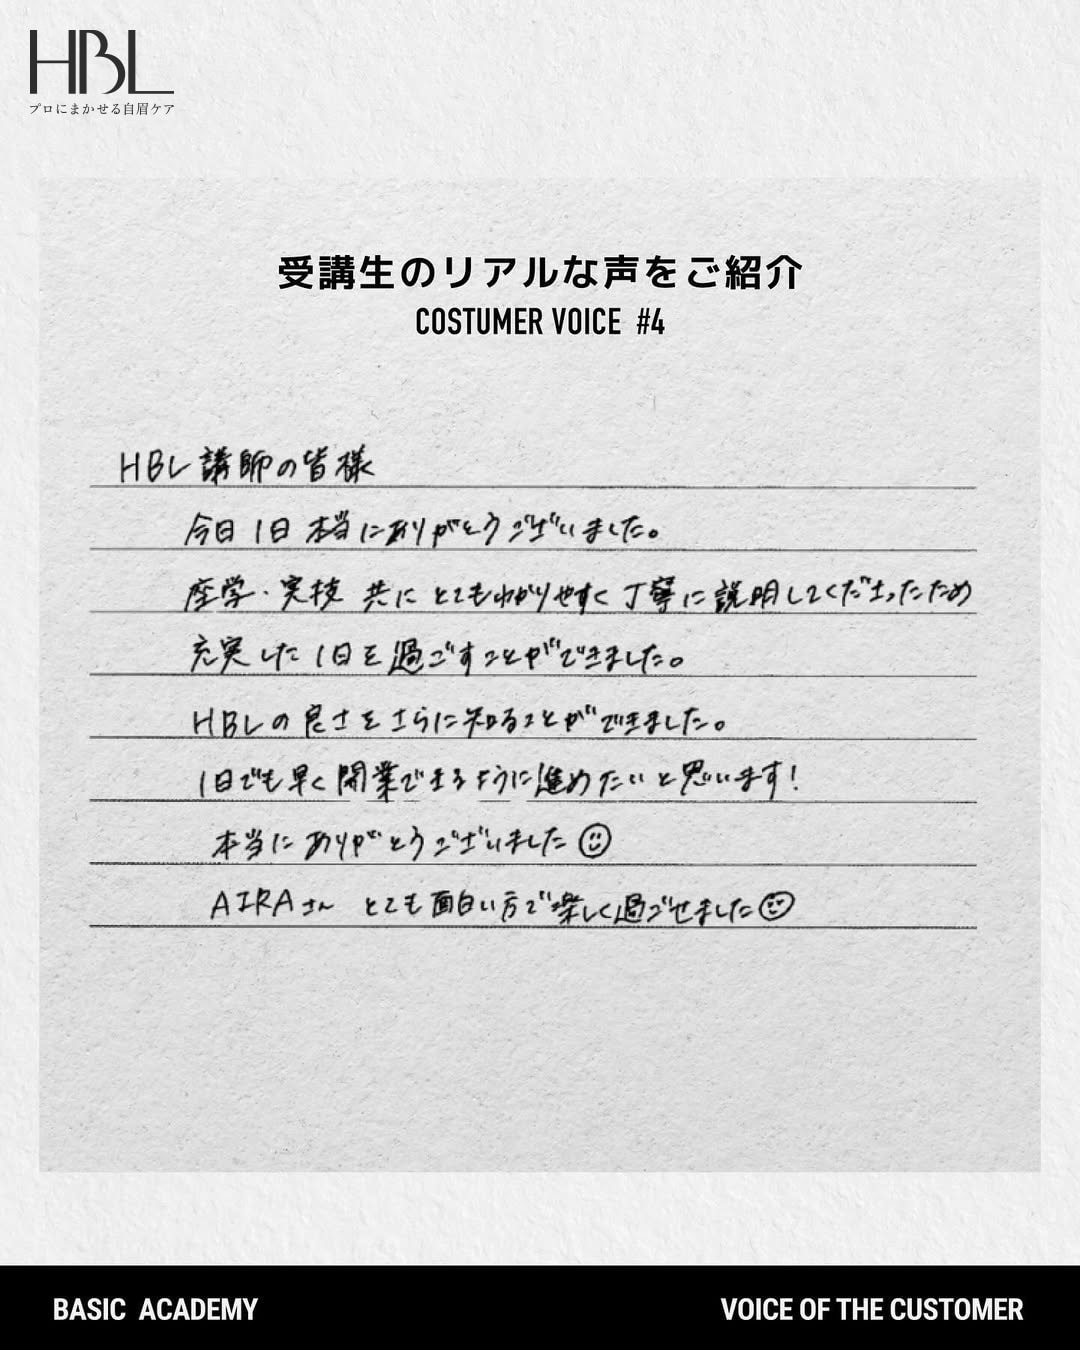 HBL
プロにまかせる自眉ケア
受講生のリアルな声をご紹介
COSTUMER VOICE #4
HBL講師の皆様
今日1日本当にありがとうございました。
座学・実技 共に とてもわかりやすく丁寧に説明してくださったため
充実した1日を過ごすことができました。
HBLの良さをさらに知ることができました。
1日でも早く開業できるように進めたいと思います!
本当にありがとうございました☺
AIRAさん とても面白い方で楽しく過ごせました☺
BASIC ACADEMY
VOICE OF THE CUSTOMER